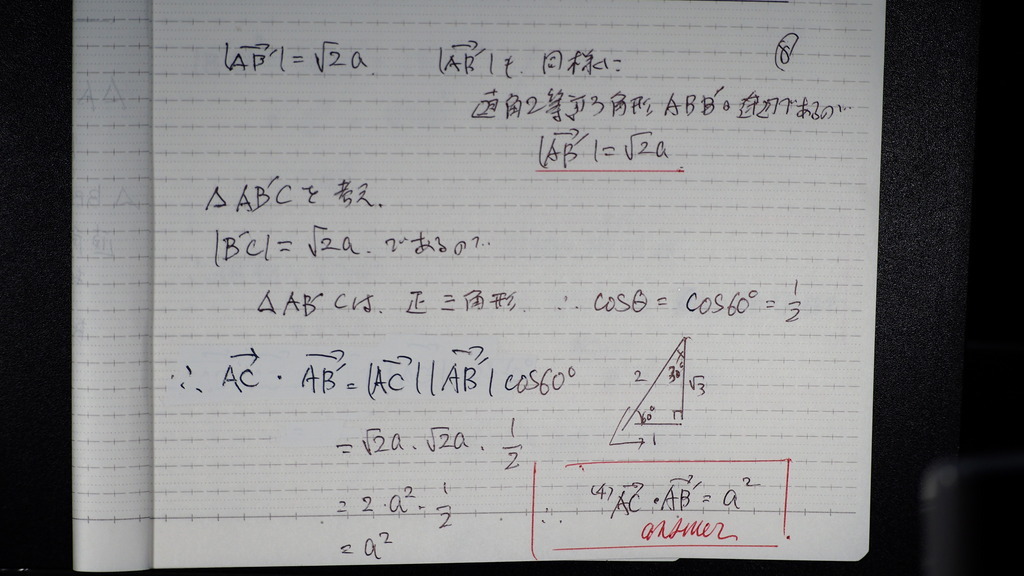 |AB'| = √2a  |AB'|も 同様に  ⑧
直角2等辺3角形 ABB'の斜辺であるので
|AB'| = √2a
△AB'Cを考え.
|B'C| = √2a. であるので
△AB'Cは. 正三角形. ∴ cosθ = cos60° = 1/2
∴ AC・AB' = |AC||AB'| cos60°
2 30° √3 60° 1
= √2a・√2a・1/2
= 2・a²・1/2
∴ (4) AC・AB' = a²
= a²
answer